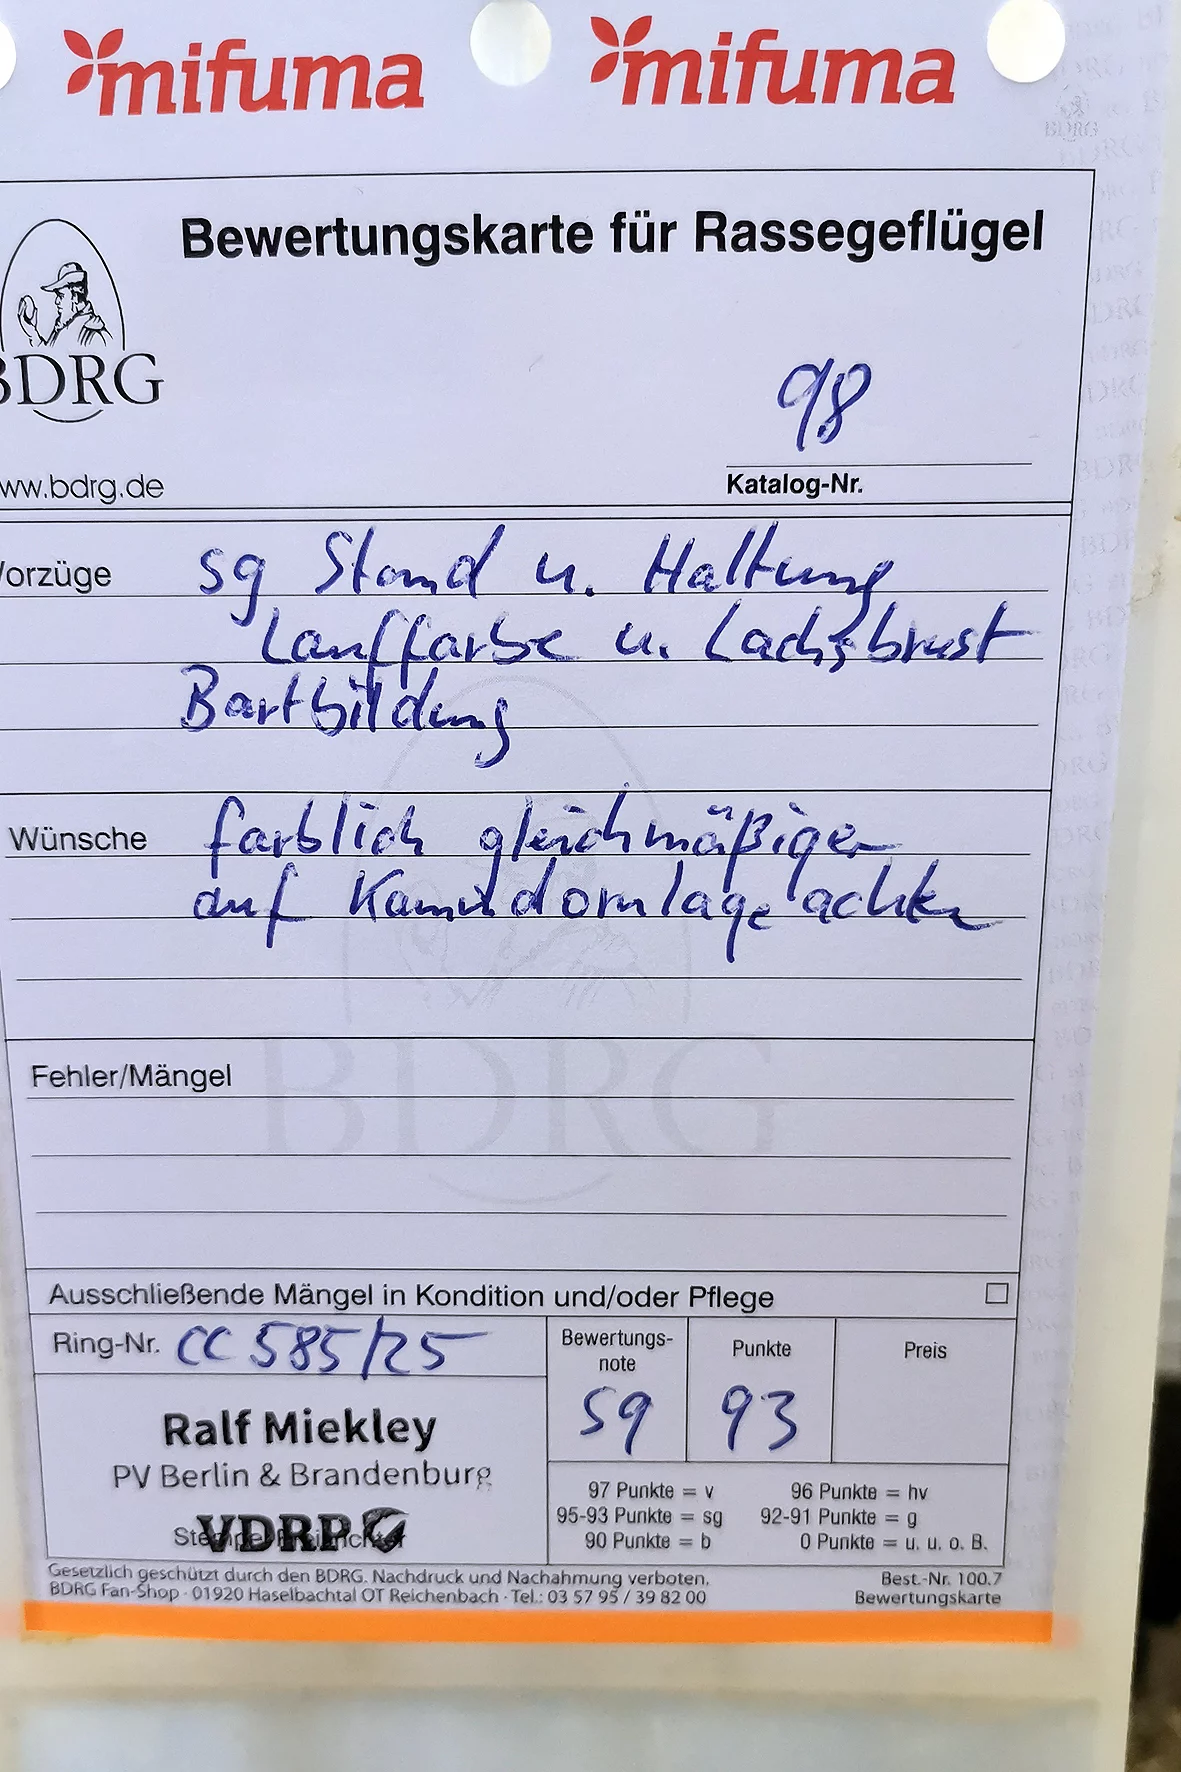 mifuma mifuma
BDRG
Bewertungskarte für Rassegeflügel
BDRG
98
www.bdrg.de
Katalog-Nr.
Vorzüge sg Stand u. Haltung
Lauffarbe u. Lachsbrust
Bartbildung
Wünsche farblich gleichmäßiger
auf Kammdornlage achten
BDRG
Fehler/Mängel
Ausschließende Mängel in Kondition und/oder Pflege
Ring-Nr. CC 585/25
Bewertungs-
note
sg
Punkte
93
Preis
Ralf Miekley
PV Berlin & Brandenburg
VDRP
Stempel Preisrichter
97 Punkte = v 96 Punkte = hv
95-93 Punkte = sg 92-91 Punkte = g
90 Punkte = b 0 Punkte = u. u. o. B.
Gesetzlich geschützt durch den BDRG. Nachdruck und Nachahmung verboten.
BDRG Fan-Shop · 01920 Haselbachtal OT Reichenbach · Tel.: 03 57 95 / 39 82 00
Best.-Nr. 100.7
Bewertungskarte